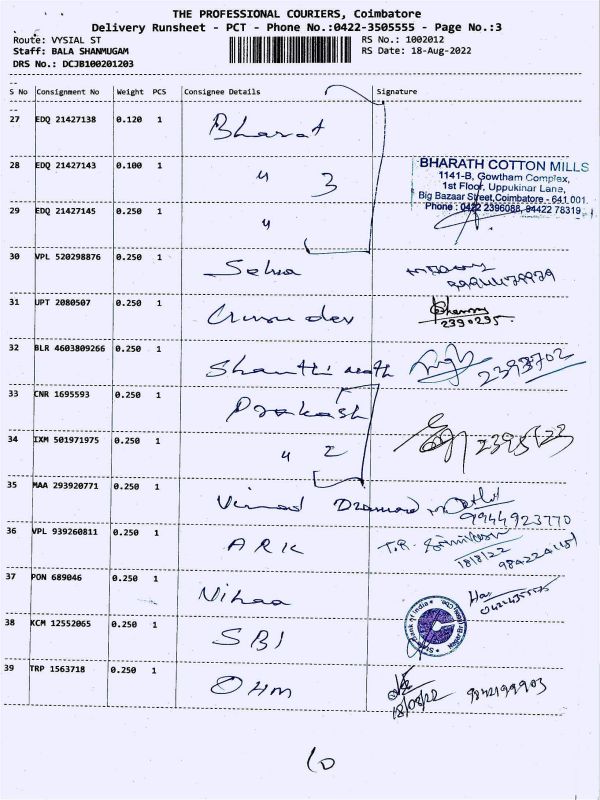 THE PROFESSIONAL COURIERS, Coimbatore
Delivery Runsheet - PCT - Phone No.:0422-3505555 - Page No.:3
Route: VYSIAL ST RS No.: 1002012
Staff: BALA SHANMUGAM RS Date: 18-Aug-2022
DRS No.: DCJB100201203
S No Consignment No Weight PCS Consignee Details Signature
27 EDQ 21427138 0.120 1 Bharat
28 EDQ 21427143 0.100 1 " 3
BHARATH COTTON MILLS
1141-B, Gowtham Complex,
1st Floor, Uppukinar Lane,
Big Bazaar Street, Coimbatore - 641 001.
Phone : 0422 2396088, 94422 78319
29 EDQ 21427145 0.250 1 "
30 VPL 520298876 0.250 1 Selva
31 UPT 2080507 0.250 1 dev
2390295
32 BLR 4603809266 0.250 1 Shanthi nath 2393702
33 CNR 1695593 0.250 1 Prakash
34 IXM 501971975 0.250 1 " 2
35 MAA 293920771 0.250 1 Vimal Diamond
9944923770
36 VPL 939260811 0.250 1 ARK T.R. Srinivasan
18/8/22
37 PON 689046 0.250 1 Nihaa
38 KCM 12552065 0.250 1 SBI
State Bank of India
39 TRP 1563718 0.250 1 OHM
18/08/22 9842199903
10